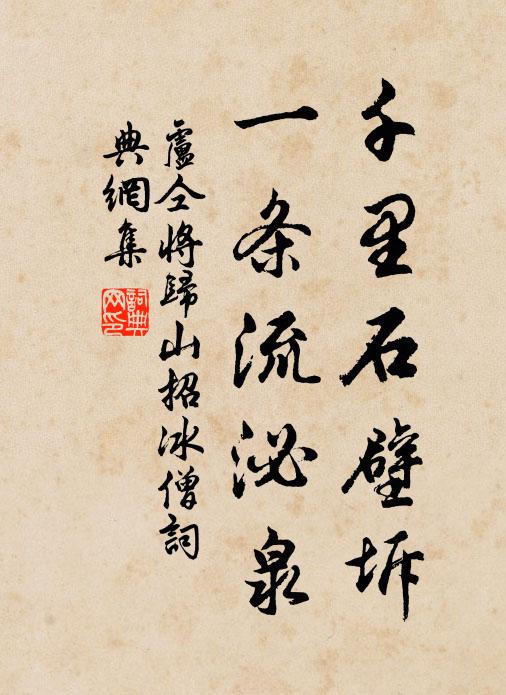 千里石壁坼
一条流泌泉
盧仝將歸山招冰僧詞
典網集
詞典網印